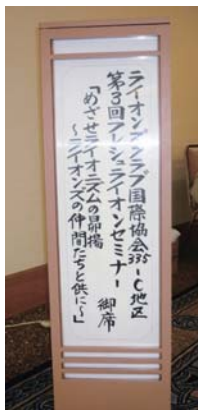 ライオンズクラブ国際協会335-C地区
第3回フレッシュライオンセミナー
御席
「めざせライオニズムの昴揚
～ライオンズの仲間たちと供に～」